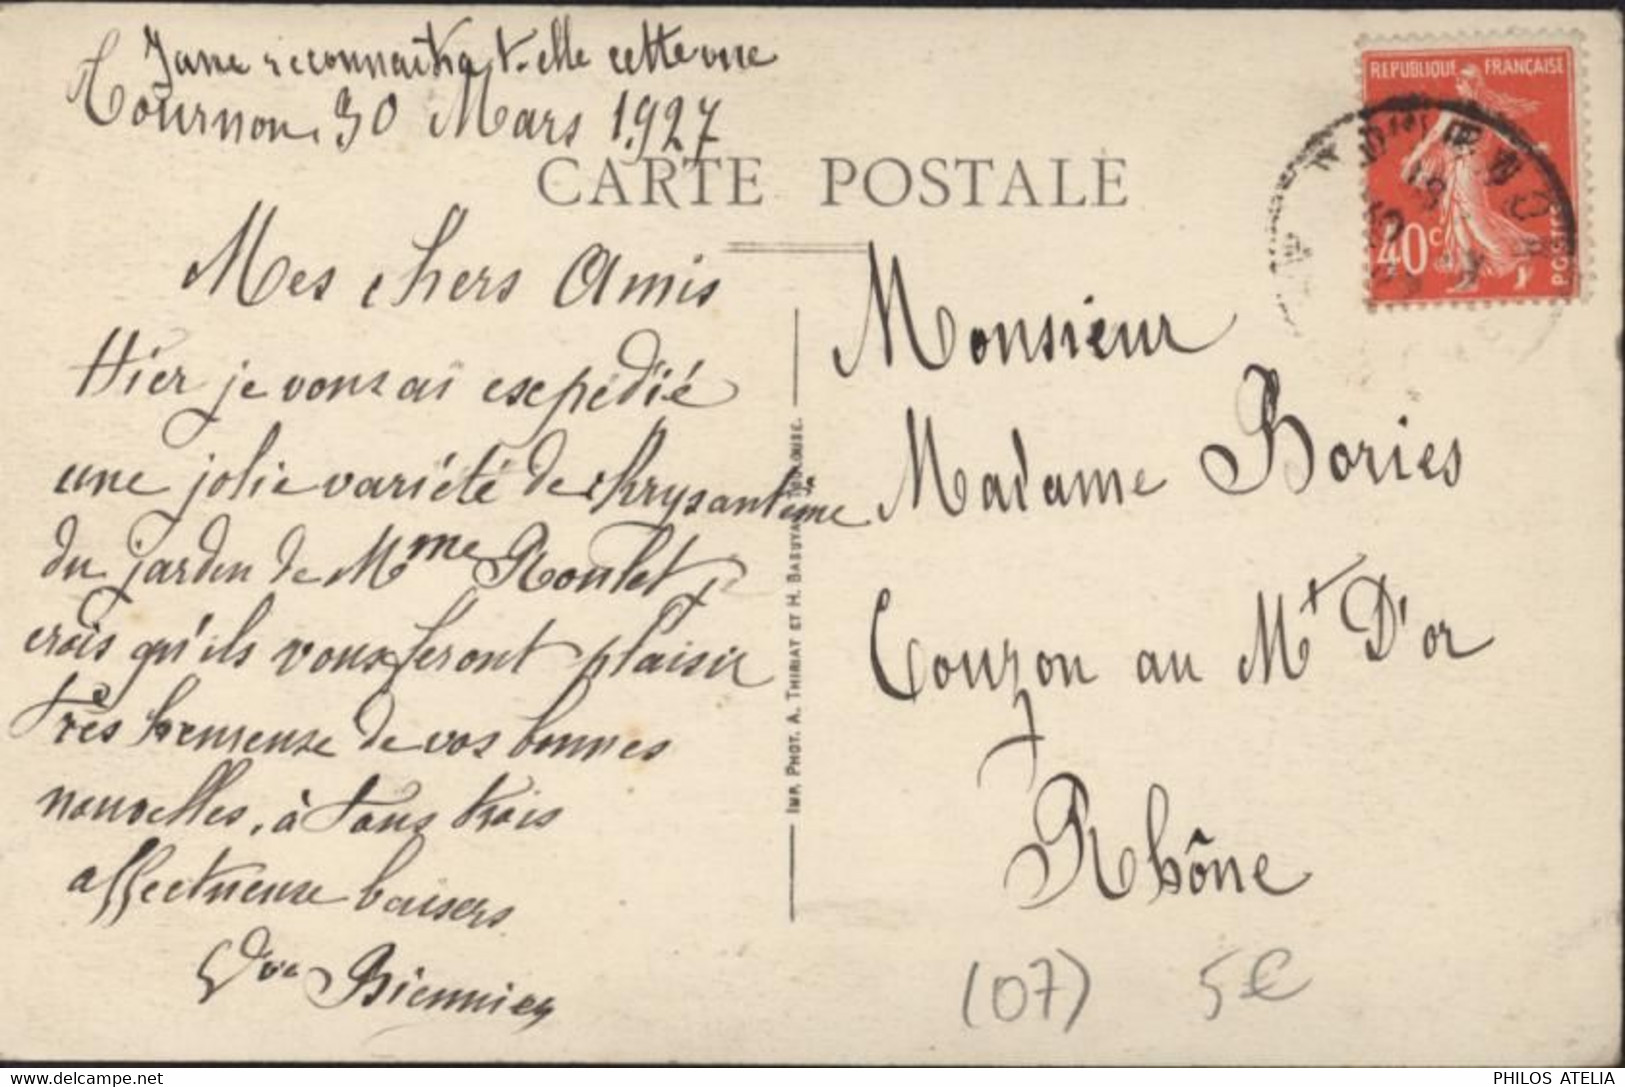 Jane reconnaitra t-elle cette vue
Tournon 30 Mars 1927
CARTE POSTALE
Mes chers Amis
Hier je vous ai esepédié
une jolie variété de chrysantème
du jardin de Mme Roulet j
crois qu'ils vous feront plaisir
très heureuse de vos bonnes
nouvelles, à tous trois
affectueuse baisers
Vve Biennier
IMP. PHOT. A. THIRIAT ET H. BASUYAU, TOULOUSE.
REPUBLIQUE FRANÇAISE
40c
POSTES
Monsieur
Madame Bories
Couzon au Mt D'or
Rhône
(07) 5€
PHILOS ATELIA